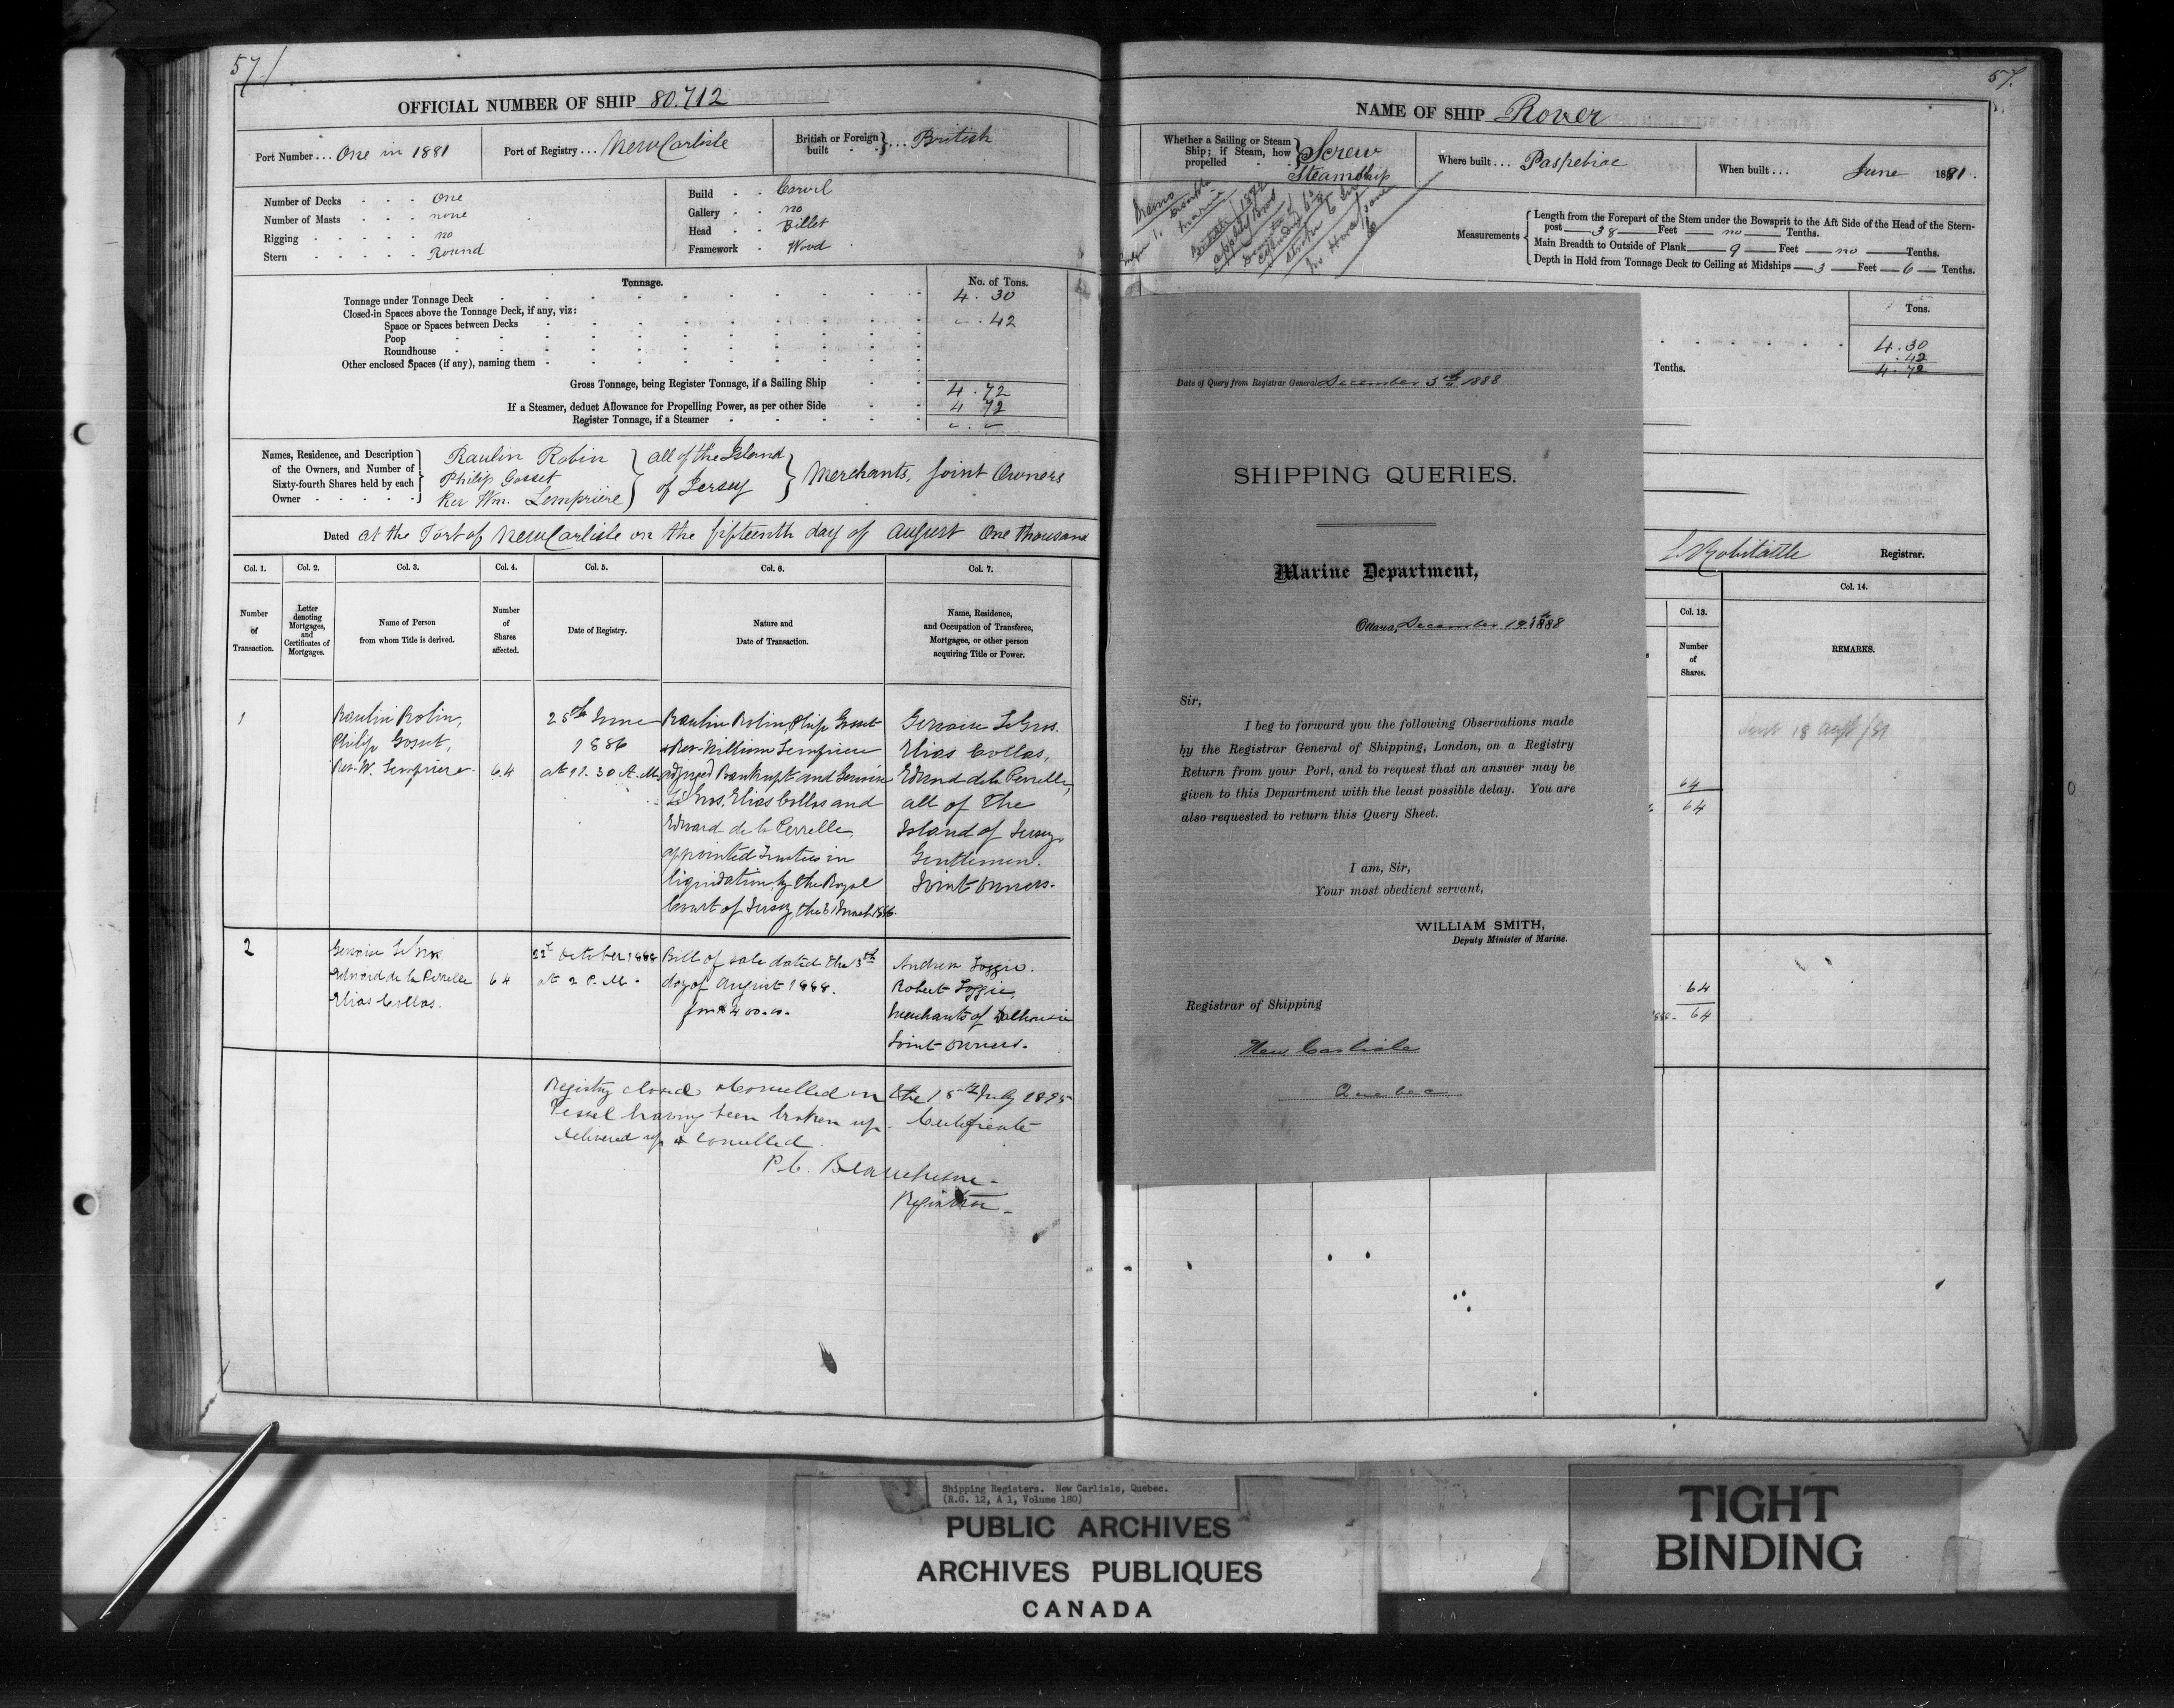 57/
OFFICIAL NUMBER OF SHIP 80.712
Port Number ... One in 1881
Port of Registry ... New Carlisle
British or Foreign built ... British
Number of Decks One
Number of Masts none
Rigging no
Stern Round
Build Carvil
Gallery no
Head Billet
Framework Wood
Tonnage.
No. of Tons.
Tonnage under Tonnage Deck 4.30
Closed-in Spaces above the Tonnage Deck, if any, viz:
Space or Spaces between Decks .42
Poop
Roundhouse
Other enclosed Spaces (if any), naming them
Gross Tonnage, being Register Tonnage, if a Sailing Ship 4.72
If a Steamer, deduct Allowance for Propelling Power, as per other Side 4 72
Register Tonnage, if a Steamer
Names, Residence, and Description of the Owners, and Number of Sixty-fourth Shares held by each Owner
Raulin Robin
Philip Gosset
Rev Wm. Lemprière
all of the Island
of Jersey
Merchants, Joint Owners
Dated at the Port of New Carlisle on the fifteenth day of August One thousand
Col. 1. Col. 2. Col. 3. Col. 4. Col. 5. Col. 6. Col. 7.
Number of Transaction.
Letter denoting Mortgages, and Certificates of Mortgages.
Name of Person from whom Title is derived.
Number of Shares affected.
Date of Registry.
Nature and Date of Transaction.
Name, Residence, and Occupation of Transferee, Mortgagee, or other person acquiring Title or Power.
1
Raulin Robin,
Philip Gosset,
Rev. W. Lemprière
64
28th June
1886
at 11.30 A.M.
Raulin Robin, Philip Gosset
& Rev. William Lemprière
adjuged Bankrupt and Gervaise
Le Gros, Elias Collas and
Edward de la Perrelle,
appointed Trustees in
liquidation, by the Royal
Court of Jersey, the
Gervaise Le Gros.
Elias Collas,
Edward de la Perrelle,
all of the
Island of Jersey
Gentlemen.
Joint owners.
2
Gervaise Le Gros
Edward de la Perrelle
Elias Collas.
64
22d October 1888
at 2 P.M.
Bill of sale dated the 3th
day of August 1888.
for $400.00.
Andrew Loggie.
Robert Loggie,
Merchants of Dalhousie
Joint owners.
Registry closed & cancelled on the 15th July 1895
Vessel having been broken up. Certificate
delivered up & cancelled.
P.C. Beauchesne
Registrar
57.
NAME OF SHIP Rover
Whether a Sailing or Steam Ship; if Steam, how propelled
Screw
Steamship
Where built ... Paspebiac
When built ... June 1881.
Memo
Measurements
Length from the Forepart of the Stem under the Bowsprit to the Aft Side of the Head of the Stern-
post 38 Feet no Tenths.
Main Breadth to Outside of Plank 9 Feet no Tenths.
Depth in Hold from Tonnage Deck to Ceiling at Midships 3 Feet 6 Tenths.
Tons.
4.30
.42
4.72
Tenths.
Robitaille Registrar.
Col. 13. Col. 14.
Number of Shares.
REMARKS.
Sent 18 Augt /81
64
64
64
64
Date of Query from Registrar General December 3th 1888
SHIPPING QUERIES.
Marine Department,
Ottawa, December 19th 1888
Sir,
I beg to forward you the following Observations made
by the Registrar General of Shipping, London, on a Registry
Return from your Port, and to request that an answer may be
given to this Department with the least possible delay. You are
also requested to return this Query Sheet.
I am, Sir,
Your most obedient servant,
WILLIAM SMITH,
Deputy Minister of Marine.
Registrar of Shipping
New Carlisle
Quebec
Shipping Registers. New Carlisle, Quebec.
(R.G. 12, A 1, Volume 180)
PUBLIC ARCHIVES
ARCHIVES PUBLIQUES
CANADA
TIGHT
BINDING